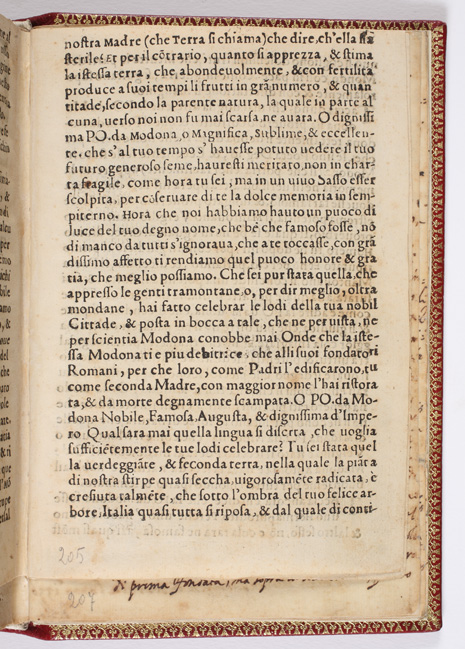 nostra Madre (che Terra si chiama) che dire, ch'ella sia
sterile? Et per il cõtrario, quanto si apprezza, & stima
la istessa terra, che, abondeuolmente, & con fertilità
produce a suoi tempi li frutti in grã numero, & quan
titade, secondo la parente natura, la quale in parte al
cuna, verso noi non fu mai scarsa, ne auara. O dignissi
ma PO. da Modona, o Magnifica, Sublime, & eccellen-
te. che s'al tuo tempo s' hauesse potuto uedere il tuo
futuro generoso seme, hauresti meritato, non in char-
ta fragile, come hora tu sei, ma in un uiuo Sasso esser
scolpita, per cõseruare di te la dolce memoria in sem-
piterno. Hora che noi habbiamo hauto un puoco di
luce del tuo degno nome, che bẽ che famoso fosse, nõ
di manco da tutti s'ignoraua, che a te toccasse, con grã
dissimo affetto ti rendiamo quel puoco honore & gra
tia, che meglio possiamo. Che sei pur stata quella, che
appresso le genti tramontane o, per dir meglio, oltra
mondane, hai fatto celebrar le lodi della tua nobil
Cittade, & posta in bocca a tale, che ne per uista, ne
per scientia Modona conobbe mai Onde che la iste-
ssa Modona ti e piu debitrice, che alli suoi fondatori
Romani, per che loro, come Padri l'edificarono, tu
come seconda Madre, con maggior nome l'hai ristora
ta, & da morte degnamente scampata. O PO. da Mo-
dona Nobile, Famosa, Augusta, & dignissima d'Impe-
ro Qual sara mai quella lingua si diserta, che uoglia
sufficiẽtemente le tue lodi celebrare? Tu sei stata quel
la uerdeggiãte, & feconda terra, nella quale la piãta
di nostra stirpe quasi seccha, uigorosamẽte radicata, è
cresiuta talmẽte, che sotto l'ombra del tuo felice ar-
bore, Italia quasi tutta si riposa, & dal quale di conti-
205
di prima
207